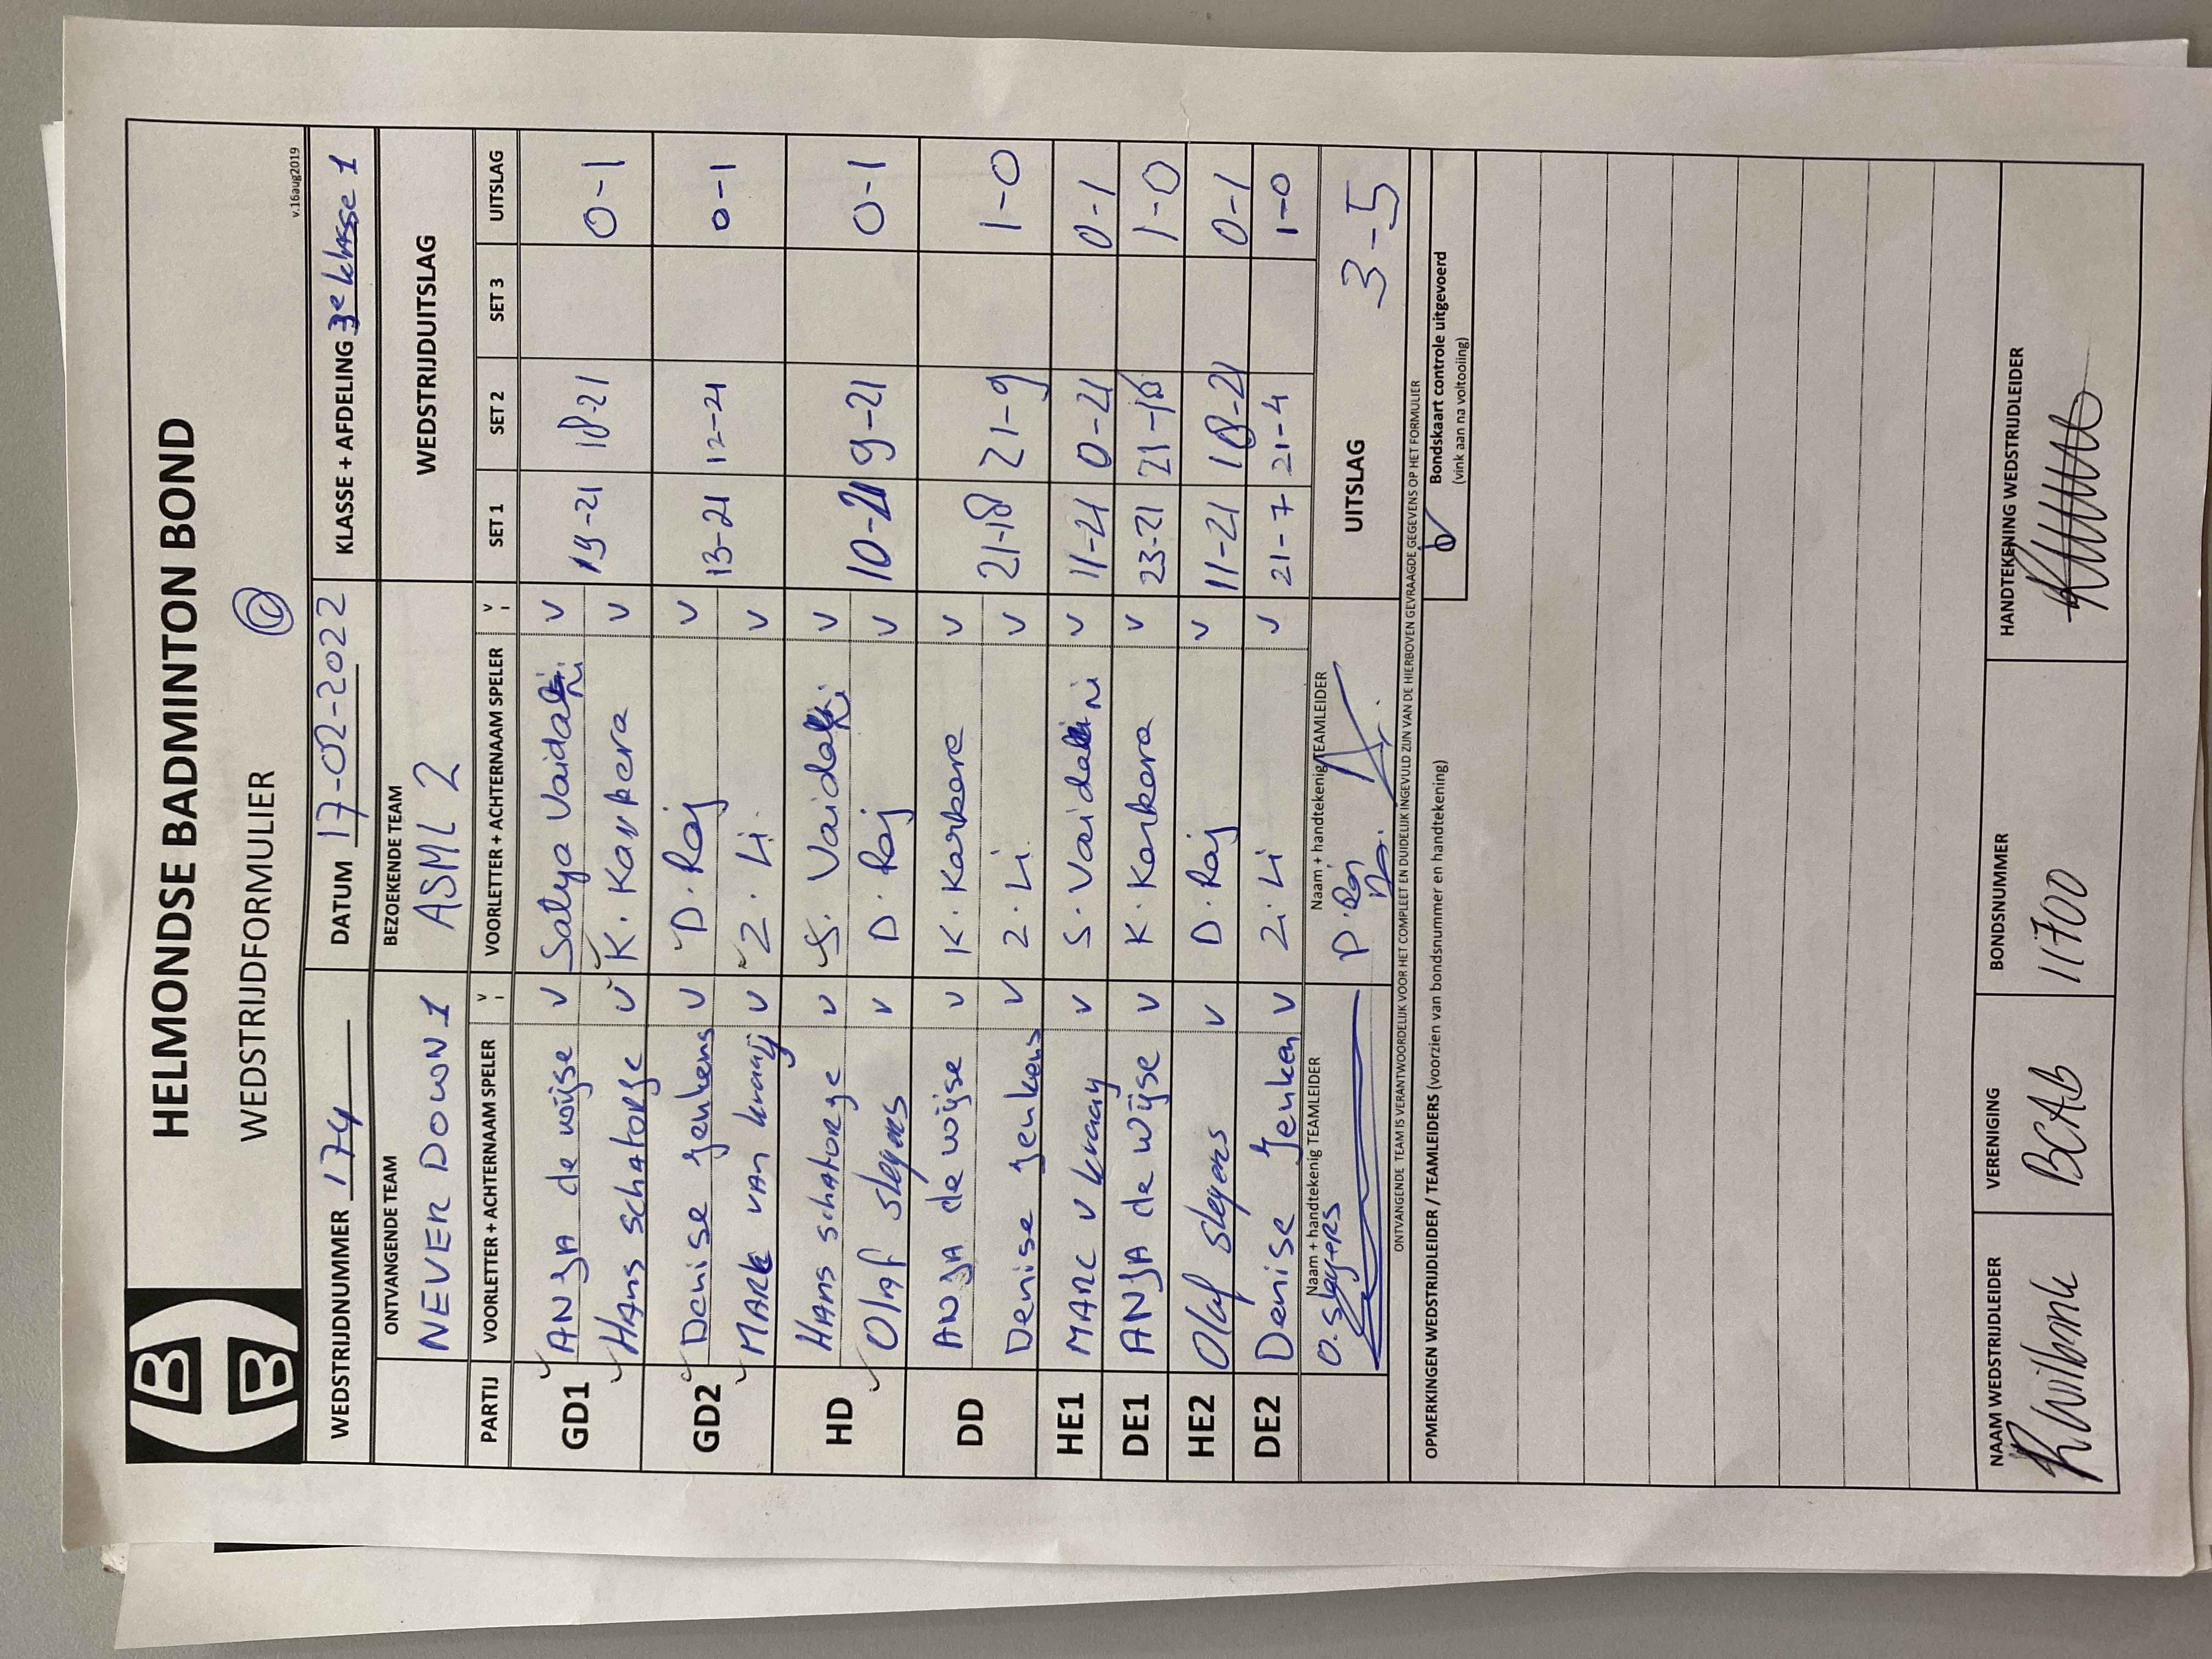 HELMONDSE BADMINTON BOND
WEDSTRIJDFORMULIER
v.16aug2019
WEDSTRIJDNUMMER 174 DATUM 17-02-2022 KLASSE + AFDELING 3e klasse 1
ONTVANGENDE TEAM BEZOEKENDE TEAM WEDSTRIJDUITSLAG
NEVER DOWN 1 ASML 2
PARTIJ VOORLETTER + ACHTERNAAM SPELER V VOORLETTER + ACHTERNAAM SPELER V SET 1 SET 2 SET 3 UITSLAG
GD1 ANJA de wijse v Satya v 19-21 18-21 0-1
Hans schatorje v K. Karkera v
GD2 Denise Jenkens v D. Raj v 13-21 12-21 0-1
MARk van kraaij v Z. Li. v
HD Hans schatorje v S. v 10-21 9-21 0-1
Olaf slegers v D. Raj v
DD ANJA de wijse v K. Karkera v 21-18 21-9 1-0
Denise Jenkens v Z. Li. v
HE1 MARC v kraaij v S. v 11-21 0-21 0-1
DE1 ANJA de wijse v K. Karkera v 23-21 21-18 1-0
HE2 Olaf slegers v D. Raj v 11-21 18-21 0-1
DE2 Denise Jenken v Z. Li v 21-7 21-4 1-0
Naam + handtekenig TEAMLEIDER Naam + handtekenig TEAMLEIDER UITSLAG 3-5
ONTVANGENDE TEAM IS VERANTWOORDELIJK VOOR HET COMPLEET EN DUIDELIJK INGEVULD ZIJN VAN DE HIERBOVEN GEVRAAGDE GEGEVENS OP HET FORMULIER
OPMERKINGEN WEDSTRIJDLEIDER / TEAMLEIDERS (voorzien van bondsnummer en handtekening) Bondskaart controle uitgevoerd
(vink aan na voltooiing)
NAAM WEDSTRIJDLEIDER VERENIGING BONDSNUMMER HANDTEKENING WEDSTRIJDLEIDER
BCAB 11700